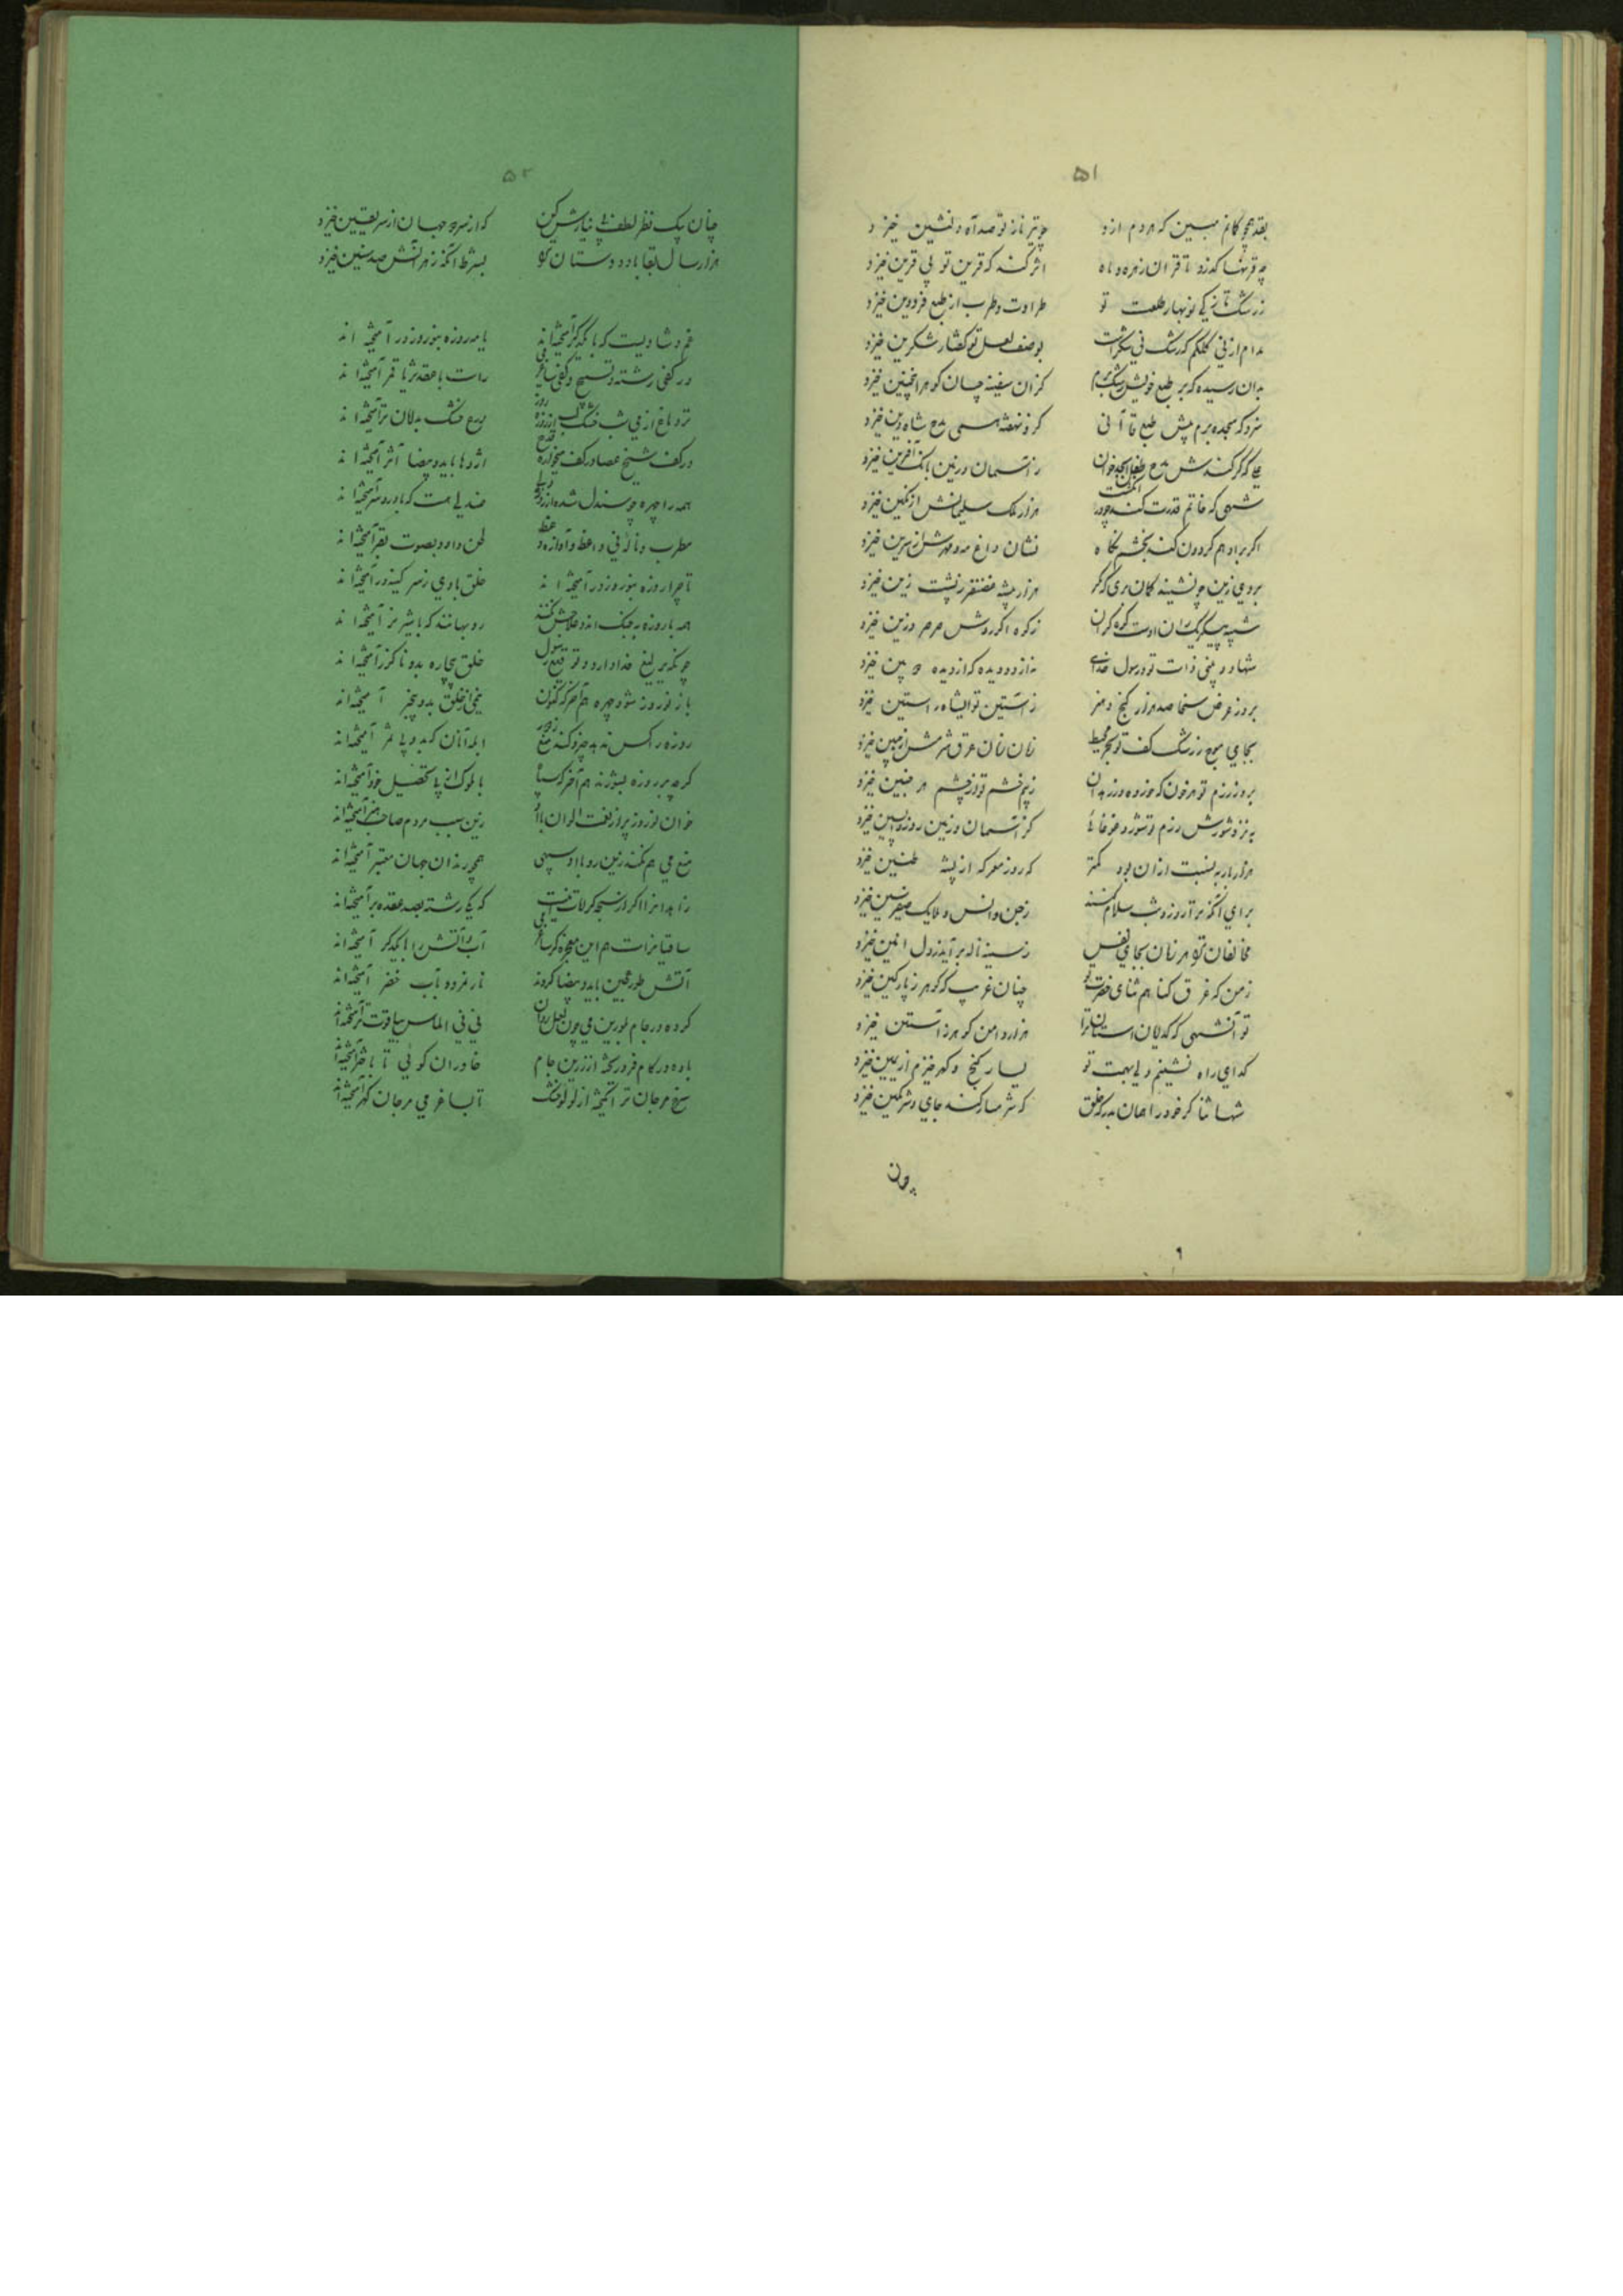 ۵۱
بقد همچو کمانم مبین که هر دم ازو چو تیر ناز تو صد آه دلنشین خیزد
چه قرنها گذرد تا قران زهره و ماه اثر کند که قرین تو بی قرین خیزد
ز رشک تازگی نوبهار طلعت تو طراوت و طرب از طبع فرودین خیزد
مدام از نی کلکم که رشک نی شکر است بوصف لعل تو گفتار شکرین خیزد
بدان رسیده که بر طبع خویش رشک برم کزان سفینه چسان گوهر اینچنین خیزد
سزد که سجده برم پیش طبع قاآنی کزو نهفته همی مدح شاه دین خیزد
علی که گر کندش مدح طفل ابجد خوان ز آسمان و زمین بانگ آفرین خیزد
شهی که خاتم قدرت کند چو در انگشت هزار ملک سلیمانش از نگین خیزد
اگر بر ادهم گردون کند بخشم نگاه نشان داغ مه و مهرش از سرین خیزد
بروی زین چو نشیند گمان بری که مگر هزار بیشه غضنفر ز پشت زین خیزد
شبیه پیکر یکران اوست کوه گران ز کوه اگر روش صرصر وزین خیزد
شها دو بینی ذات تو و رسول خدای نه از دو دیده که از دیده دو بین خیزد
بروز عرض سخا صد هزار گنج و هنر ز آستین تو ایشاه راستین خیزد
بجای موج ز رشک کف تو بحر محیط زمان زمان عرق شرمش از جبین خیزد
بروز رزم تو هر خون که خورده در زهدان ز بیم خشم تو از چشم هر جنین خیزد
به نزد شورش رزم تو شور و غوغائی کز آسمان و زمین روز واپسین خیزد
هزار بار به نسبت از آن بود کمتر که روز معرکه از پشه طنین خیزد
برای آنکه برآرد روز و شب سلام کنند ز جن و انس و ملایک صفیر سین خیزد
مخالفان تو هر زمان بجای نفس ز سینه ناله برآید ز دل انین خیزد
ز من که غرق گناهم ثنای حضرت تو چنان غریب که گوهر ز پارگین خیزد
تو آنشهی که گدایان آستان ترا هزار دامن گوهر ز آستین خیزد
گدای راه نشینم ولی بهمت تو یسار گنج و گهر خیزم از یمین خیزد
شها ثناگر خود را مران بدرگه خلق که شرمسار کند جای و شرمگین خیزد
چون
۵۲
چنان بیک نظر لطف بی نیازش کن که از سر دو جهان از سر یقین خیزد
هزار سال بقا باد دوستان ترا بشرط آنکه ز هر آنش صد سنین خیزد
غم و شادیست که با یکدگر آمیخته اند یا مه روزه بنوروز در آمیخته اند
در کفی رشته تسبیح و کفی ساغر می راست با عقد ثریا قمر آمیخته اند
تر دماغ از می شب خشک لب از روزه روز ورع خشک بدامان تر آمیخته اند
در کف شیخ عصا در کف میخواره قدح اژدها با ید و بیضا اثر آمیخته اند
همه را چهره چو صندل شده از روزه صندلی هست که با درد سر آمیخته اند
مطرب و ناله نی واعظ و آوازه وعظ لحن داود بصوت بقر آمیخته اند
تا چرا روزه بنوروز در آمیخته اند خلق با وی ز سر کینه در آمیخته اند
همه با روزه بجنگ اند و علاجش نکنند روبهانند که با شیر نر آمیخته اند
چون که یرلیغ خدا دارد و توقیع رسول خلق بیچاره بدو ناگزر آمیخته اند
باز نوروز شود چیره هم آخر که کنون نیمی از خلق بدو بیخبر آمیخته اند
روزه را کس ندهد چیز و کند منع ز خور ابله آنان که بدو بی ثمر آمیخته اند
گر چه بر روزه بشورند هم آخر که سپاه با ملوک از پی تحصیل خور آمیخته اند
خوان نوروز پر از نعمت الوان با او زین سبب مردم صاحب هنر آمیخته اند
منع می هم نکند زین رو با او سپهی همچو رندان جهان معتبر آمیخته اند
زاهدانرا اگر از سبحه کرامات اینست که یکی رشته بصد عقده بر آمیخته اند
ساقیانراست هم این معجزه کز ساغر می آب و آتش را با یکدگر آمیخته اند
آتش طور عجین با ید بیضا کردند نار نمرود بآب خضر آمیخته اند
کرده در جام بلورین می چون لعل روان نی نی الماس بیاقوت تر آمیخته اند
باده در کام فرو ریخته از زرین جام خاوران گوئی تا باختر آمیخته اند
سرخ مرجان تر انگیخته از لولو خشک تا بساغر می مرجان گهر آمیخته اند